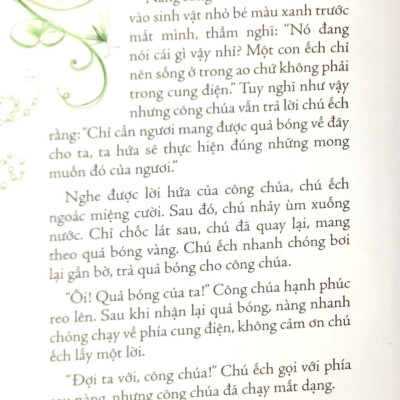 vào sinh vật nhỏ bé màu xanh trước
mắt mình, thầm nghĩ: “Nó đang
nói cái gì vậy nhỉ? Một con ếch chỉ
nên sống ở trong ao chứ không phải
trong cung điện.” Tuy nghĩ như vậy
nhưng công chúa vẫn trả lời chú ếch
rằng: “Chỉ cần ngươi mang được quả bóng về đây
cho ta, ta hứa sẽ thực hiện đúng những mong
muốn đó của ngươi.”
Nghe được lời hứa của công chúa, chú ếch
ngoác miệng cười. Sau đó, chú nhảy ùm xuống
nước. Chỉ chốc lát sau, chú đã quay lại, mang
theo quả bóng vàng. Chú ếch nhanh chóng bơi
lại gần bờ, trả quả bóng cho công chúa.
“Ôi! Quả bóng của ta!” Công chúa hạnh phúc
reo lên. Sau khi nhận lại quả bóng, nàng nhanh
chóng chạy về phía cung điện, không cảm ơn chú
ếch lấy một lời.
“Đợi ta với, công chúa!” Chú ếch gọi với phía
nàng, nhưng công chúa đã chạy mất dạng.